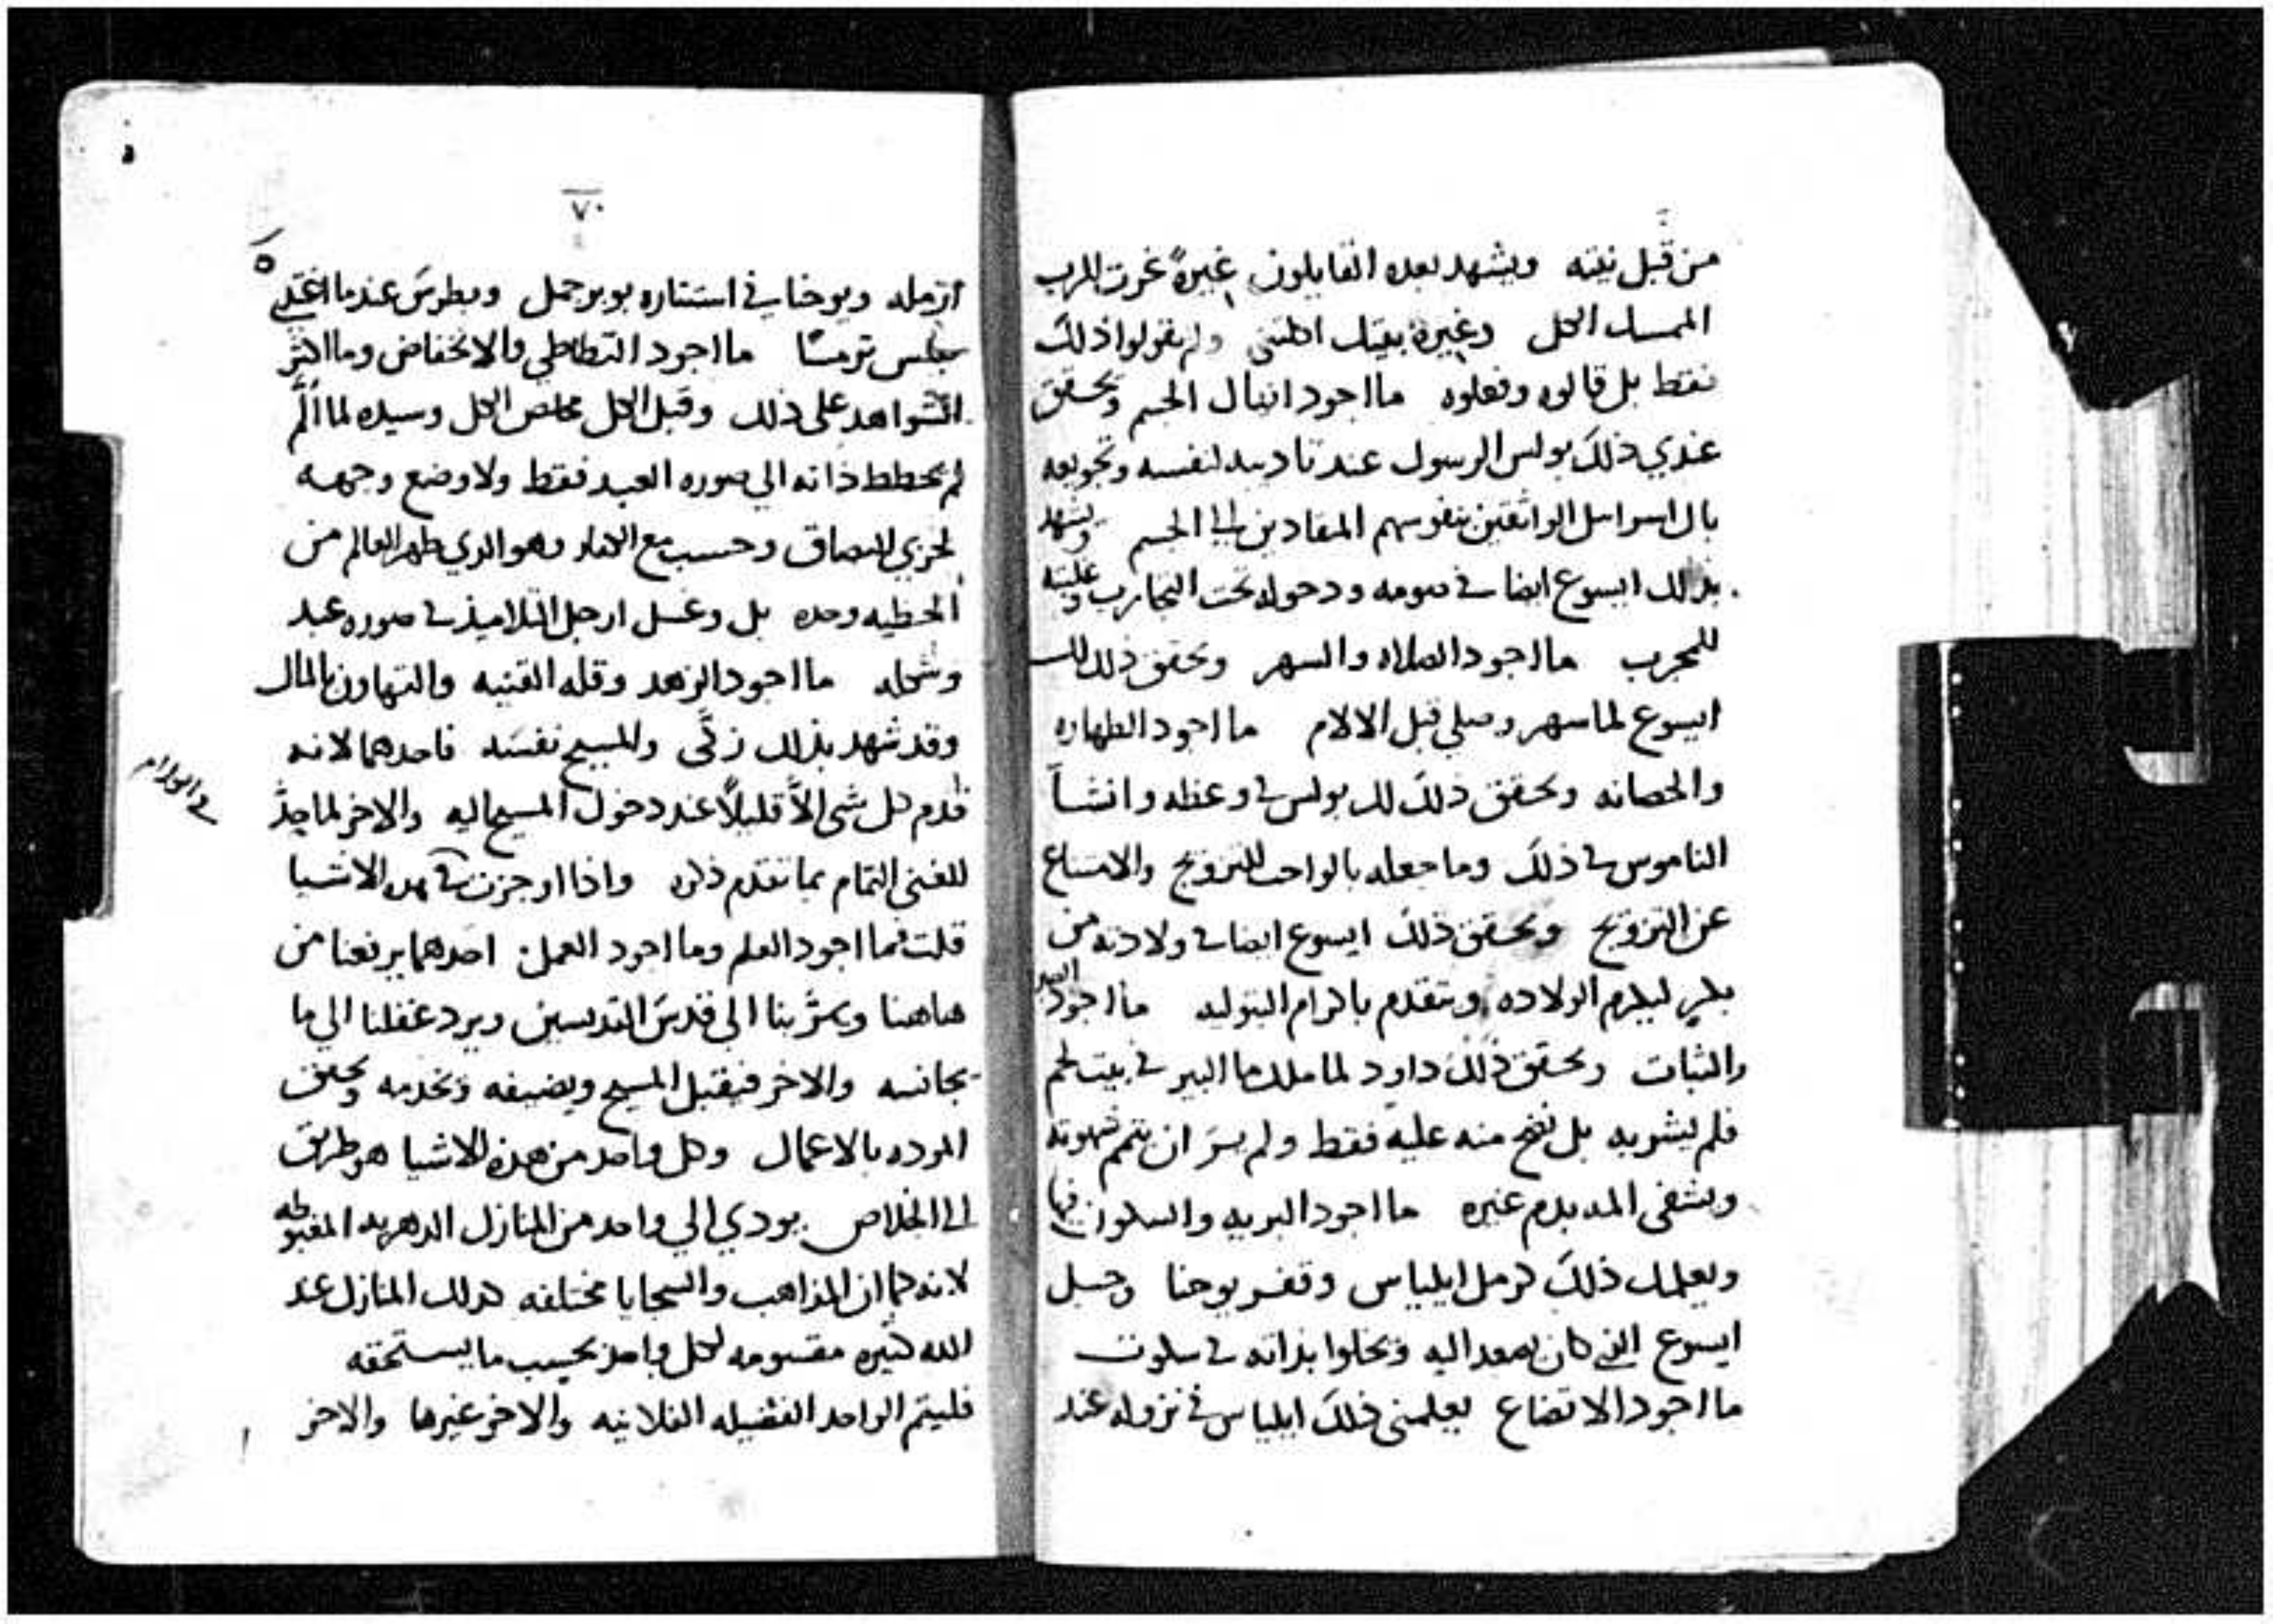 من قبل نيته ويشهد بعده القايلون غيرةً غرت للرب
الممسك الكل وغيرة بيتك اكلتني ولم يقولوا ذلك
فقط بل قالوه وفعلوه ما اجود اذبال الجسم ويحقق
عندي ذلك بولس الرسول عند تاديبه لنفسه وتخويفه
بال اسراييل الواثقين بنفوسهم المنقادين الى الجسم ويشهد
بذلك ايسوع ايضا في صومه ودخوله تحت التجارب وغلبته
للمجرب ما اجود الصلاه والسهر ويحقق ذلك لك
ايسوع لما سهر وصلي قبل الالام ما اجود الطهاره
والحصانه ويحقق ذلك لك بولس في وعظه وانشا
الناموس في ذلك وما جعله بالواجب للتزويج والامتناع
عن التزويج ويحقق ذلك ايسوع ايضا في ولادته من
بكر ليكرم الولاده ويتقدم باكرام البتوليه ما اجود الصبر
والثبات ويحقق ذلك داود لما ملك ما البير في بيت لحم
فلم يشربه بل نضح منه عليه فقط ولم يسر ان يتمم شهوته
ويشفي المه بدم غيره ما اجود البريه والسكون فيها
ويعلمك ذلك كرمل ايلياس وقفر يوحنا وجبل
ايسوع الذي كان يصعد اليه ويخلوا بذاته في سكوت
ما اجود الاتضاع يعلمني ذلك ايلياس في نزوله عند
٧٠
ارمله ويوحنا في استتاره بوبر جمل وبطرس عندما اغتدي
بفلس ترمسًا ما اجود التطاطي والانخفاض وما اكثر
الشواهد على ذلك وقبل الكل مخلص الكل وسيده لما
لم يحطط ذاته الي صوره العبد فقط ولا وضع وجهه
لخزي البصاق وحسب مع وهو الدي طهر العالم من
الخطيه وحده بل وغسل ارجل التلاميذ في صوره عبد
وشكله ما اجود الزهد وقله القنيه والتهاون بالمال
وقد شهد بذلك زكَّى والمسيح نفسَه فاحدهما لانه
قدم كل شى الاَّ قليلاً عند دخول المسيح اليه والاخر لما حدَّ
للغنى التمام بما تقدم ذكره واذا اوجزت في هده الاشيا
قلت فما اجود العلم وما اجود العمل احدهما يرفعنا من
هاهنا ويقربنا الى قدس القديسين ويرد عقلنا الي ما
يجانسه والاخر فيقبل المسيح ويضيفه ويخدمه ويحقق
الموده بالاعمال وكل واحد من هذه الاشيا هو طريق
الى الخلاص يودي الي واحد من المنازل الدهريه المغبوطه
لانه كما ان المذاهب والسجايا مختلفه كدلك المنازل عند
الله كثيره مقسومه لكل واحد بحسب ما يستحقه
فليتم الواحد الفضيله الفلانيه والاخر غيرها والاخر